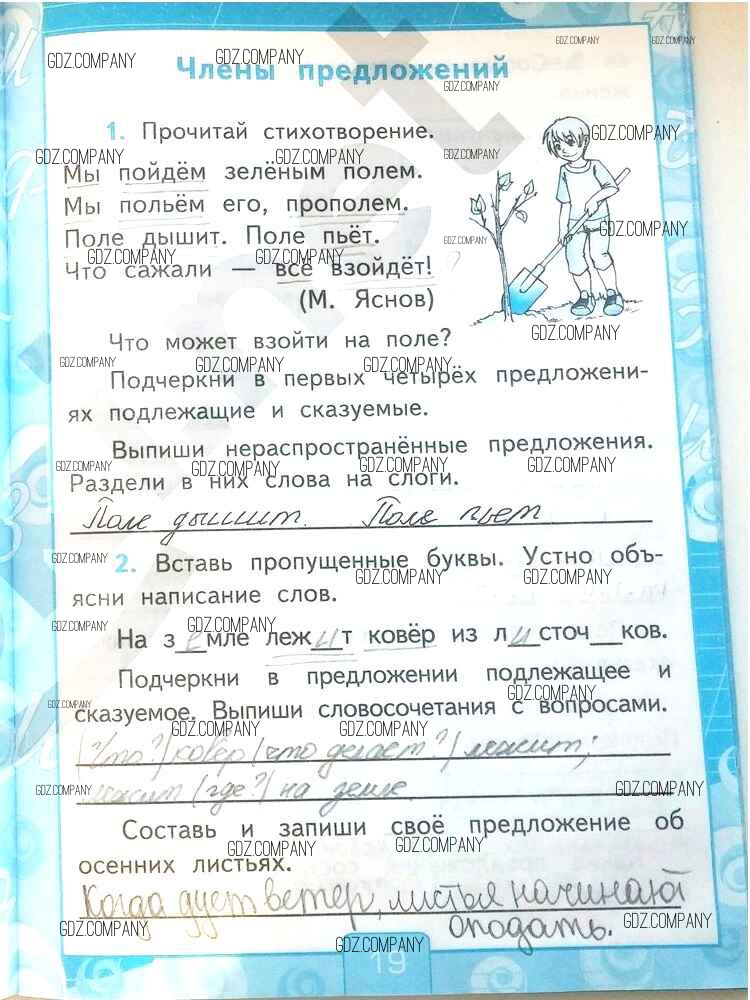 Члены предложений
1. Прочитай стихотворение.
Мы пойдём зелёным полем.
Мы польём его, прополем.
Поле дышит. Поле пьёт.
Что сажали — всё взойдёт!
(М. Яснов)
Что может взойти на поле?
Подчеркни в первых четырёх предложени-
ях подлежащие и сказуемые.
Выпиши нераспространённые предложения.
Раздели в них слова на слоги.
Поле дышит. Поле пьет
2. Вставь пропущенные буквы. Устно объ-
ясни написание слов.
На з е мле леж и т ковёр из л и сточ__ков.
Подчеркни в предложении подлежащее и
сказуемое. Выпиши словосочетания с вопросами.
(Что?) ковёр (что делает?) лежит;
лежит (где?) на земле.
Составь и запиши своё предложение об
осенних листьях.
Когда дует ветер, листья начинают
оподать.
19
GDZ.COMPANY